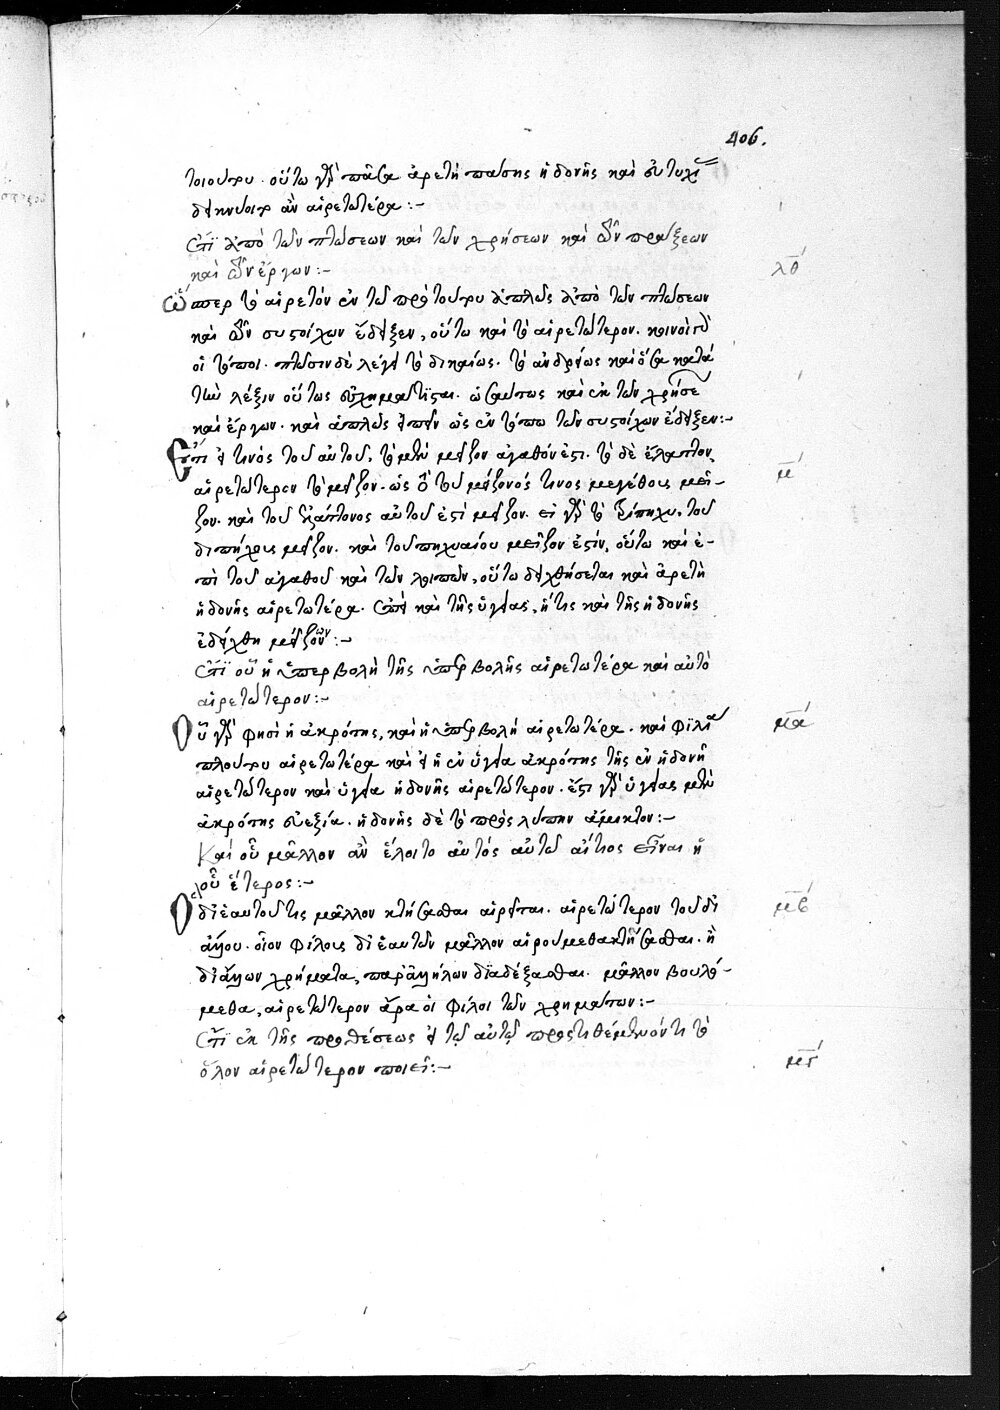 406.
τοιούτου. οὕτω γὰρ πᾶσα ἀρετὴ πάσης ἡδονῆς καὶ εὐτυχί
δεικνύοιτο ἂν αἱρετωτέρα:-
Ἔτι ἀπὸ τῶν πτώσεων καὶ τῶν χρήσεων καὶ τῶν πράξεων
καὶ τῶν ἔργων:-
λθ
Ὥσπερ τὸ αἱρετὸν ἐν τῷ πρὸ τούτου ἁπλῶς ἀπὸ τῶν πτώσεων
καὶ τῶν συστοίχων ἔδειξεν, οὕτω καὶ τὸ αἱρετώτερον. κοινοὶ γὰρ
οἱ τόποι. πτῶσιν δὲ λέγει τὸ δικαίως. τὸ ἀνδρείως καὶ ὅσα κατὰ
τὴν λέξιν οὕτως ἐσχημάτισται. ὡσαύτως καὶ ἐκ τῶν χρήσε
καὶ ἔργων. καὶ ἁπλῶς εἰπεῖν ὡς ἐν τόπῳ τῶν συστοίχων ἔδειξεν:-
Ἔτι εἰ τινὸς τοῦ αὐτοῦ, τὸ μὲν μεῖζον ἀγαθόν ἐστι. τὸ δὲ ἔλαττον,
μ
αἱρετώτερον τὸ μεῖζον. ὡς τὸ τοῦ μείζονός τινος μεγέθους μεῖ-
ζον. καὶ τοῦ ἐλάττονος αὐτοῦ ἐστὶ μεῖζον. εἰ γὰρ τὸ τρίπηχυ, τοῦ
διπήχους μεῖζον. καὶ τοῦ πηχυαίου μεῖζον ἐστίν, οὕτω καὶ ἐ-
πὶ τοῦ ἀγαθοῦ καὶ τῶν λοιπῶν, οὕτω δειχθήσεται καὶ ἀρετὴ
ἡδονῆς αἱρετωτέρα. ἐπεὶ καὶ τῆς ὑγείας, ἥτις καὶ τῆς ἡδονῆς
ἐδείχθη μεῖζον:-
Ἔτι οὗ ἡ ὑπερβολὴ τῆς ὑπερβολῆς αἱρετωτέρα καὶ αὐτὸ
αἱρετώτερον:-
Οὗ γὰρ φησὶ ἡ ἀκρότης, καὶ ἡ ὑπερβολὴ αἱρετωτέρα. καὶ φιλία
μα
πλούτου αἱρετωτέρα καὶ εἰ ἡ ἐν ὑγεία ἀκρότης τῆς ἐν ἡδονῇ
αἱρετώτερον καὶ ὑγεία ἡδονῆς αἱρετώτερον. ἔστι γὰρ ὑγείας μὲν
ἀκρότης εὐεξία. ἡδονῆς δὲ τὸ πρὸς λύπην ἄμικτον:-
Καὶ οὗ μᾶλλον ἂν ἕλοιτο αὐτὸς αὐτῷ αἴτιος εἶναι ἢ
οὗ ἕτερος:-
Ὃ δι' ἑαυτοῦ τις μᾶλλον κτήσασθαι αἱρεῖται. αἱρετώτερον τοῦ δι
μβ
ἄλλου. οἷον φίλους δι' ἑαυτῶν μᾶλλον αἱρούμεθα κτήσασθαι. ἢ
δι' ἄλλων χρήματα, παρ' ἀλλήλων διαδέξασθαι. μᾶλλον βουλό-
μεθα, αἱρετώτερον ἄρα οἱ φίλοι τῶν χρημάτων:-
Ἔτι ἐκ τῆς προσθέσεως εἰ τῷ αὐτῷ προστιθέμενόν τι τὸ
ὅλον αἱρετώτερον ποιεῖ:-
μγ